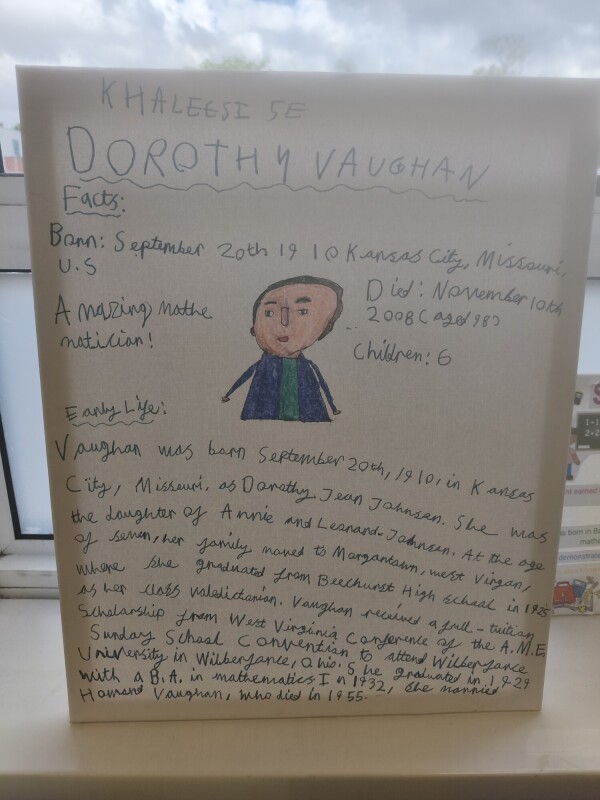 KHALEESI 5E
DOROTHY VAUGHAN
Facts:
Born: September 20th 1910 Kansas City, Missouri,
U.S
Amazing Mathe
matician!
Died: November 10th
2008 (aged 98)
Children: 6
Early Life:
Vaughan was born September 20th, 1910, in Kansas
City, Missouri, as Dorothy Jean Johnson. She was
the daughter of Annie and Leonard Johnson. At the age
of seven, her family moved to Morgantown, west Virgan,
where she graduated from Beechurst High school in 1925
as her class valedictorian. Vaughan received a full-tuition
Scholarship from West Virginia Conference of the A.M.E
Sunday School Convention to attend Wilberforce
University in Wilberforce, Ohio. She graduated in 1929
with a B.A. in mathematics In 1932, she married
Howard Vaughan, who died in 1955.